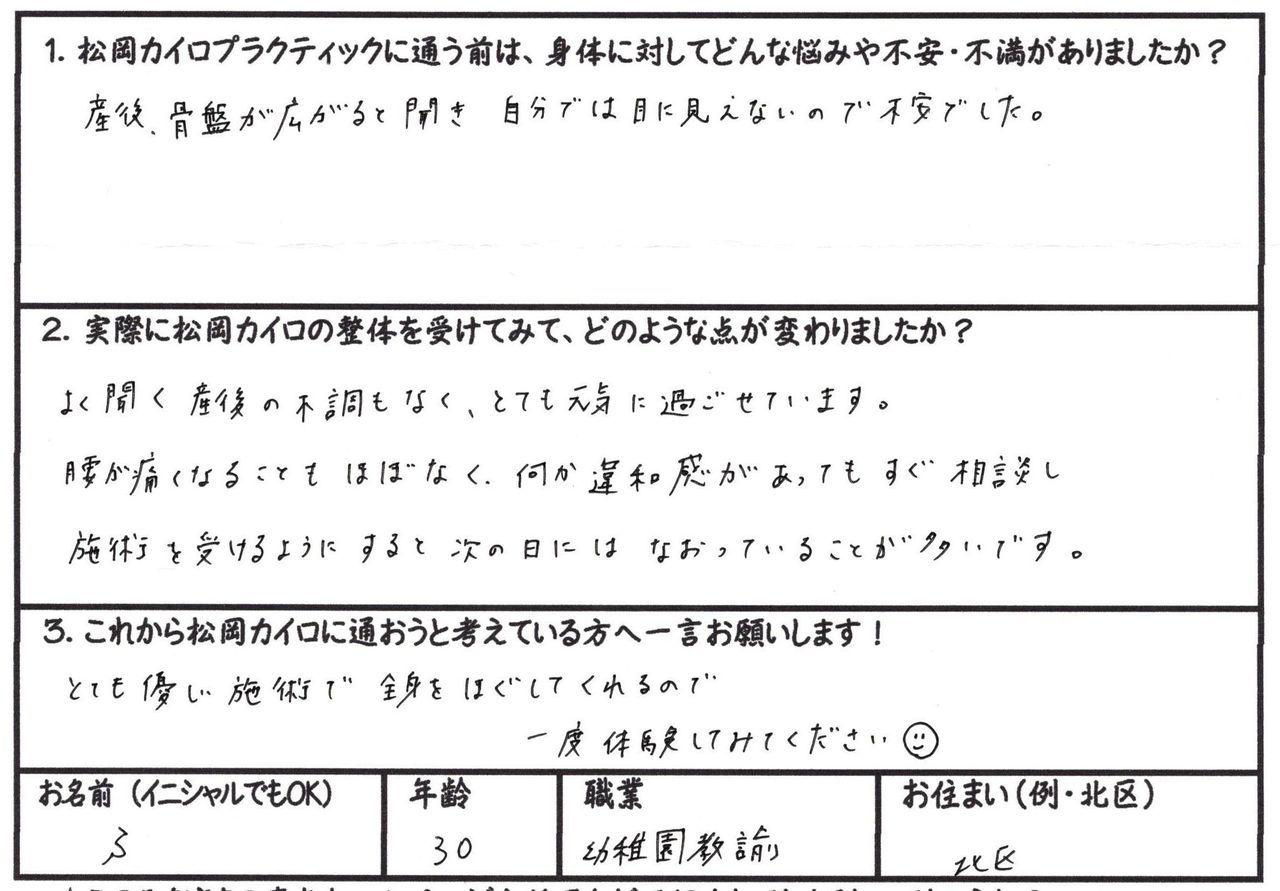 1. 松岡カイロプラクティックに通う前は、身体に対してどんな悩みや不安・不満がありましたか？
産後、骨盤が広がると聞き 自分では目に見えないので不安でした。
2. 実際に松岡カイロの整体を受けてみて、どのような点が変わりましたか？
よく聞く産後の不調もなく、とても元気に過ごせています。
腰が痛くなることもほぼなく、何か違和感があってもすぐ相談し
施術を受けるようにすると次の日にはなおっていることが多いです。
3. これから松岡カイロに通おうと考えている方へ一言お願いします！
とても優しい施術で全身をほぐしてくれるので
一度体験してみてください
お名前（イニシャルでもOK） 年齢 職業 お住まい（例・北区）
30 幼稚園教諭 北区